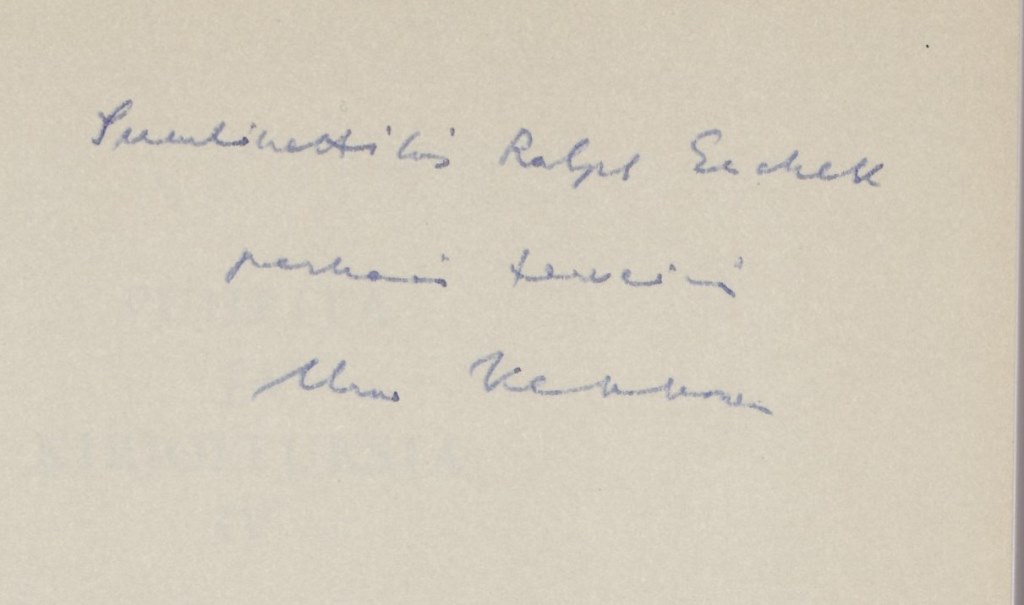 Suurlähettiläs Ralph Enckell
parhain terveisin
Urho Kekkonen